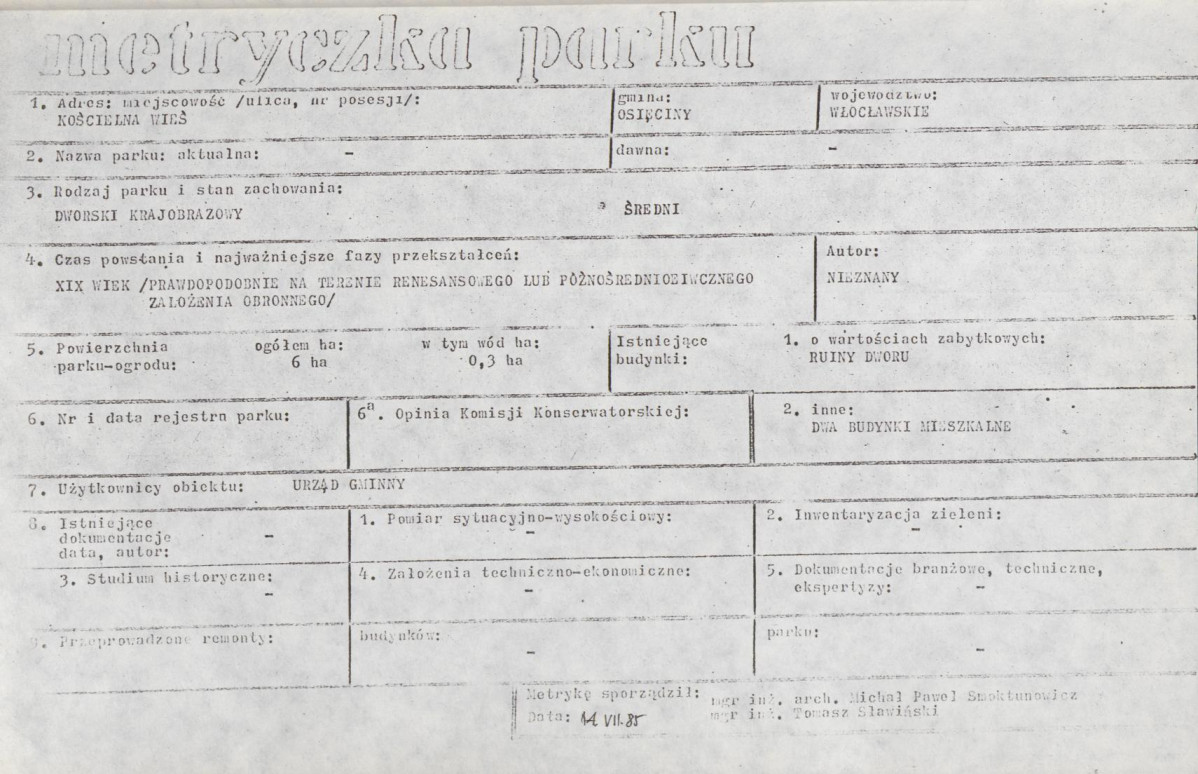 metryczka parku
1. Adres: miejscowość /ulica, nr posesji/:
KOŚCIELNA WIEŚ
gmina:
OSIĘCINY
województwo:
WŁOCŁAWSKIE
2. Nazwa parku: aktualna: -
dawna: -
3. Rodzaj parku i stan zachowania:
DWORSKI KRAJOBRAZOWY ŚREDNI
4. Czas powstania i najważniejsze fazy przekształceń:
XIX WIEK /PRAWDOPODOBNIE NA TERENIE RENESANSOWEGO LUB PÓŹNOŚREDNIOZIWCZNEGO
ZAŁOŻENIA OBRONNEGO/
Autor:
NIEZNANY
5. Powierzchnia ogółem ha: w tym wód ha:
parku-ogrodu: 6 ha 0,3 ha
Istniejące
budynki:
1. o wartościach zabytkowych:
RUINY DWORU
6. Nr i data rejestru parku:
6a. Opinia Komisji Konserwatorskiej:
2. inne:
DWA BUDYNKI MIESZKALNE
7. Użytkownicy obiektu: URZĄD GMINNY
8. Istniejące
dokumentacje -
data, autor:
1. Pomiar sytuacyjno-wysokościowy:
-
2. Inwentaryzacja zieleni:
-
3. Studium historyczne:
-
4. Założenia techniczno-ekonomiczne:
-
5. Dokumentacje branżowe, techniczne,
ekspertyzy: -
9. Przeprowadzone remonty:
budynków:
-
parku:
-
Metrykę sporządził: mgr inż. arch. Michał Paweł Smoktunowicz
Data: 14 VII.85 mgr inż. Tomasz Sławiński